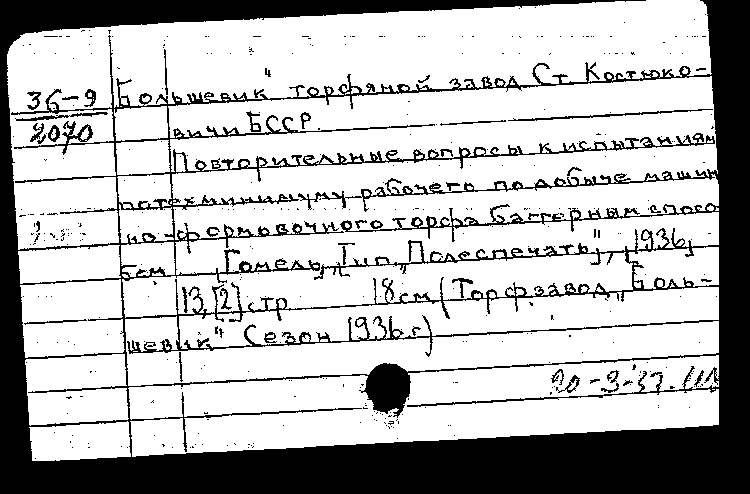 36-9
2070
Большевик" торфяной завод Ст. Костюко-
вичи БССР.
Повторительные вопросы к испытаниям
по техминимуму рабочего по добыче машин
но-формовочного торфа багерным спосо
бом [Гомель, Тип. „Полеспечать"], [1936]
13, [2] стр 18 см (Торфзавод „Боль-
шевик" Сезон 1936 г)
20-9-37.